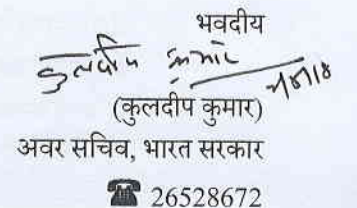 भवदीय
कुलदीप कुमार
(कुलदीप कुमार)
अवर सचिव, भारत सरकार
☎ 26528672